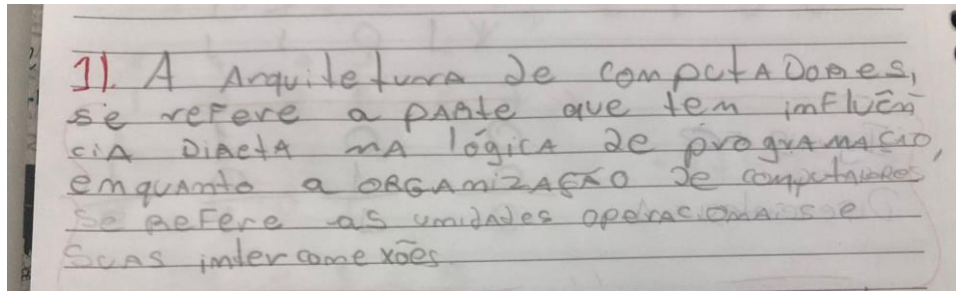 1). A Arquitetura de computadores,
se refere a parte que tem influên
cia Direta na lógica de programação,
enquanto a organização de computadores
se refere as unidades operacionais e
suas interconexões